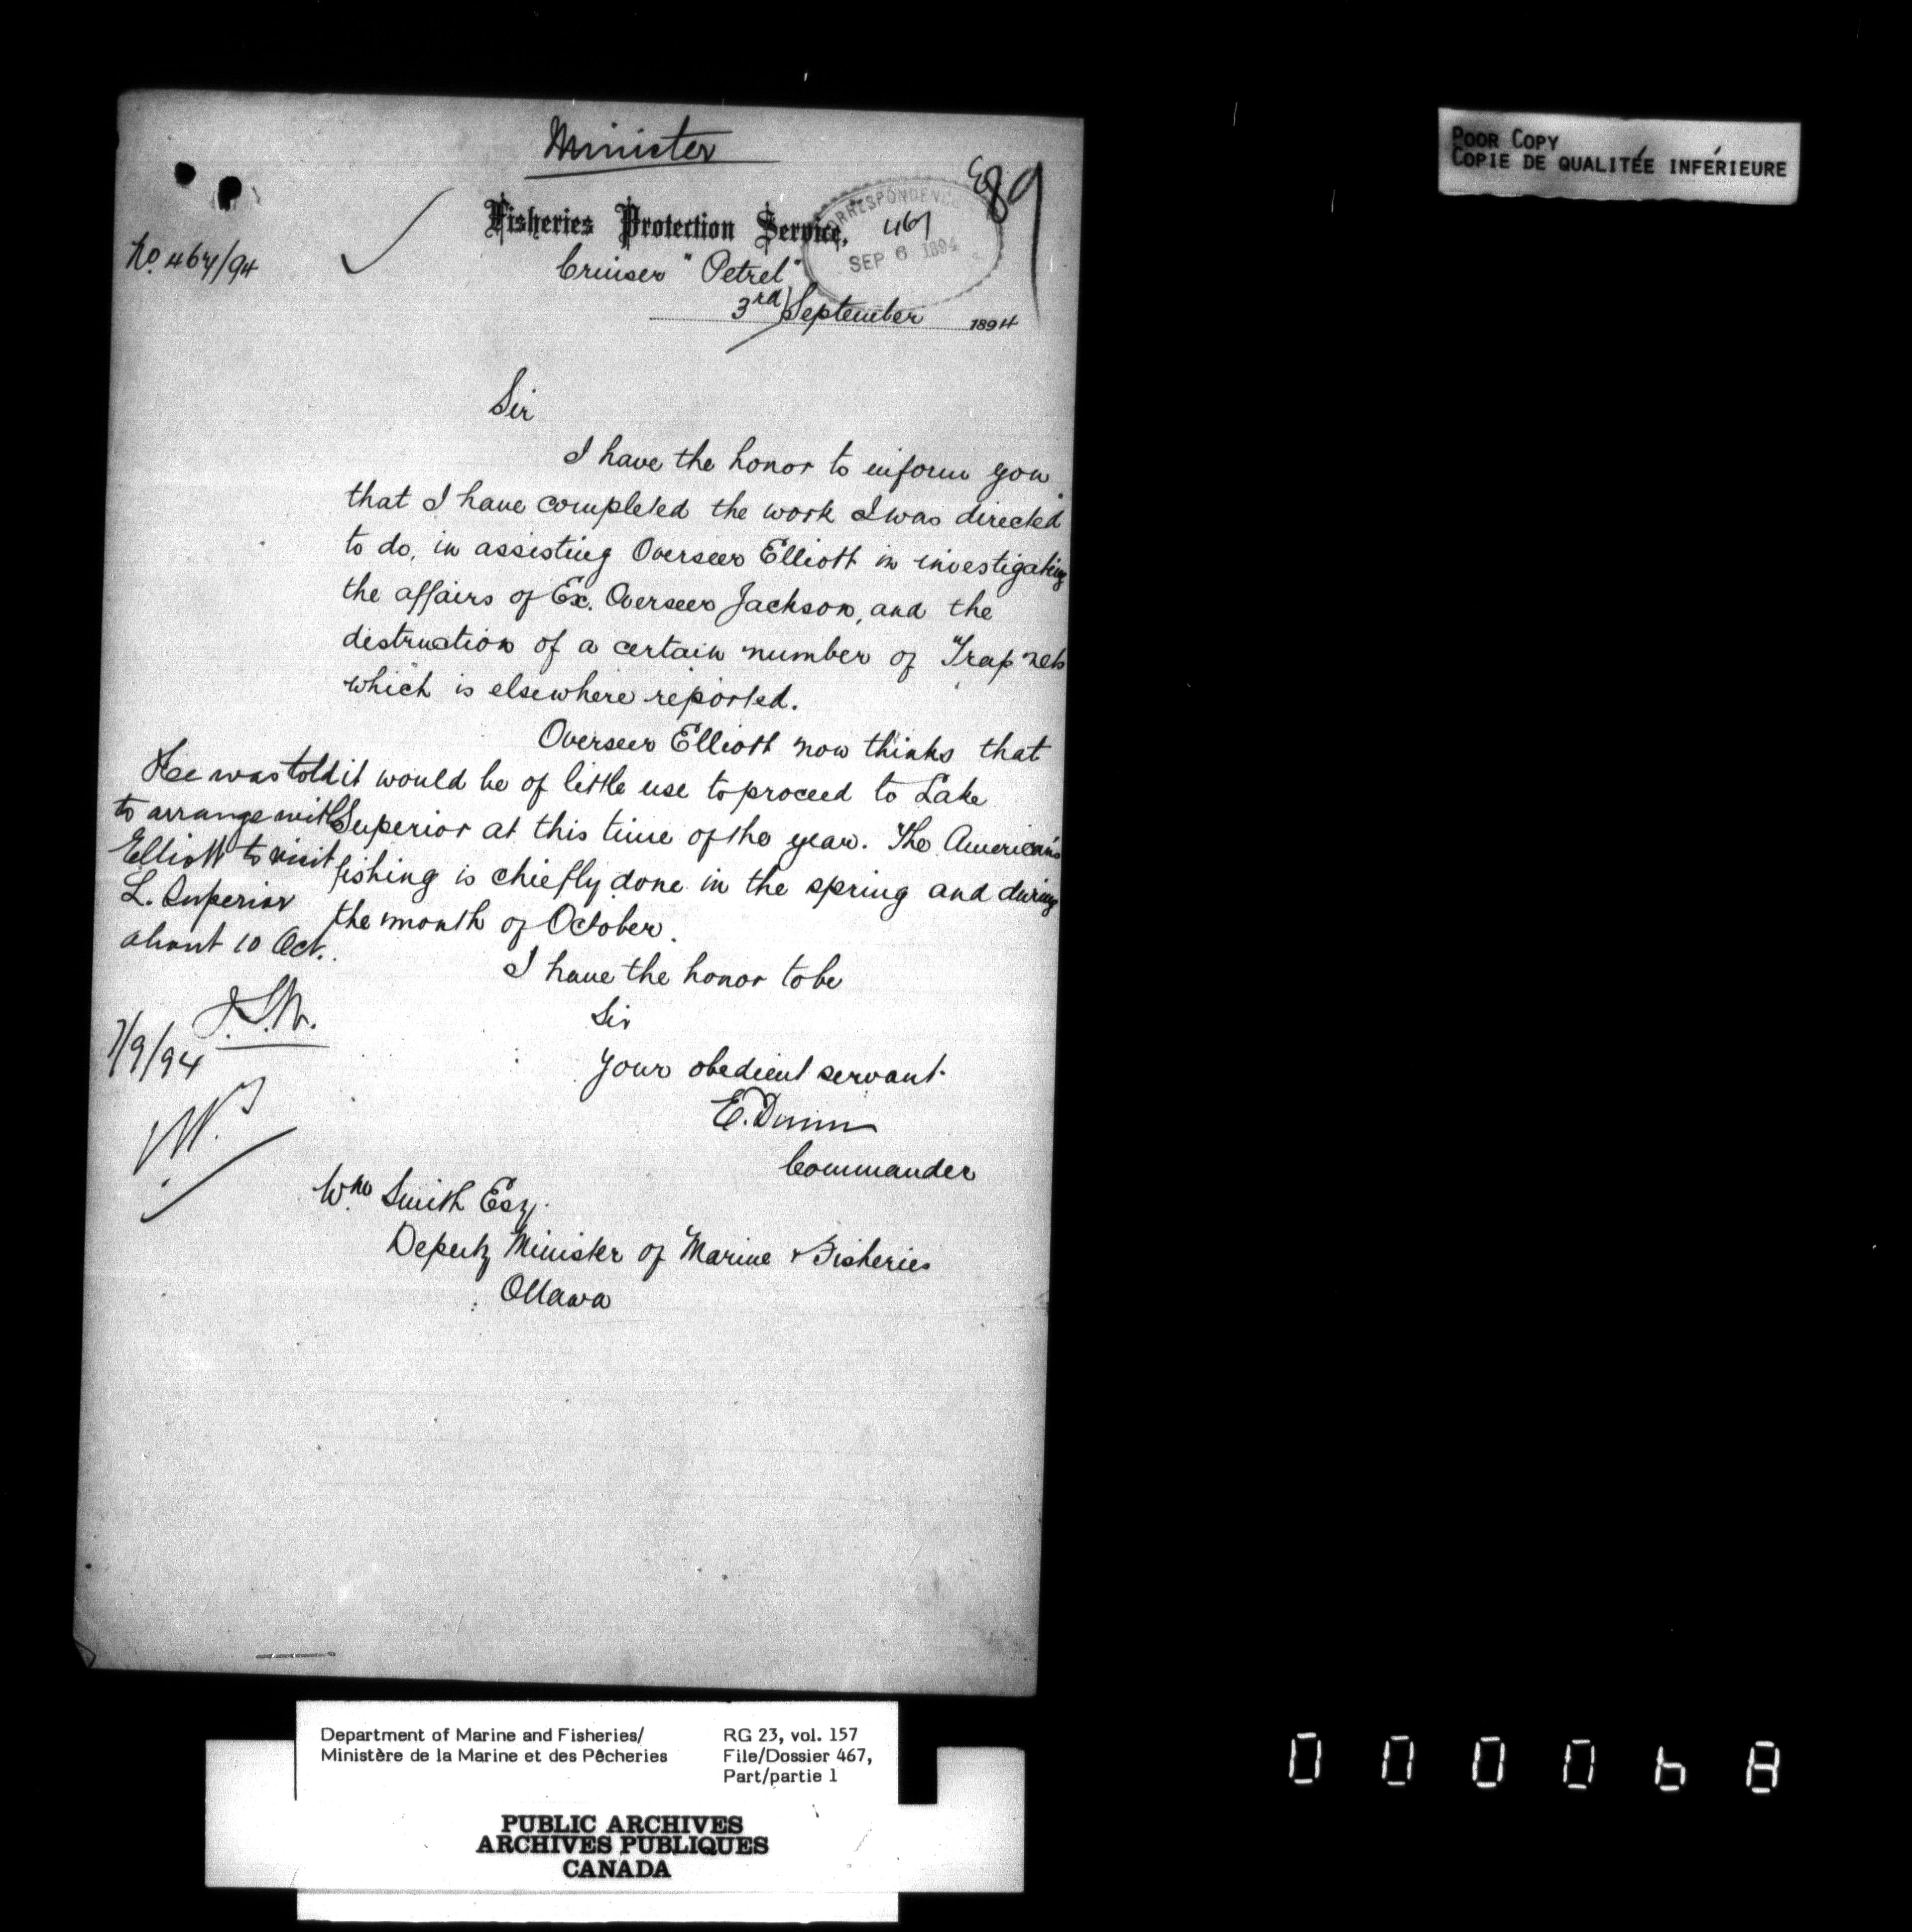 Minister
POOR COPY
COPIE DE QUALITÉE INFÉRIEURE
89
Fisheries Protection Service,
CORRESPONDENCE
467
SEP 6 1894
No. 467/94
Cruiser "Petrel"
3rd September 1894
Sir
I have the honor to inform you
that I have completed the work I was directed
to do, in assisting Overseer Elliott in investigating
the affairs of Ex. Overseer Jackson, and the
distruction of a certain number of Trap nets
which is elsewhere reported.
Overseer Elliott now thinks that
it would be of little use to proceed to Lake
Superior at this time of the year. The American's
fishing is chiefly done in the spring and during
the month of October.
He was told
to arrange with
Elliott to visit
L. Superior
about 10 Oct.
7/9/94
I have the honor to be
Sir
Your obedient servant
E. Dunn
Commander
Wm Smith Esq.
Deputy Minister of Marine & Fisheries
Ottawa
Department of Marine and Fisheries/
Ministère de la Marine et des Pêcheries
RG 23, vol. 157
File/Dossier 467,
Part/partie 1
PUBLIC ARCHIVES
ARCHIVES PUBLIQUES
CANADA
000068